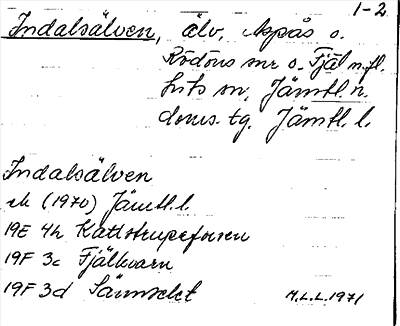 1-2
Indalsälven, älv, Aspås o.
Rödöns snr o. Fjäl m.fl.
Lits sn, Jämtl. n.
doms. tg. Jämtl. l.
Indalsälven
ek (1970) Jämtl. l.
19E 4h Kattstrupeforsen
19F 3c Fjälkvarn
19F 3d
H.L.L. 1971